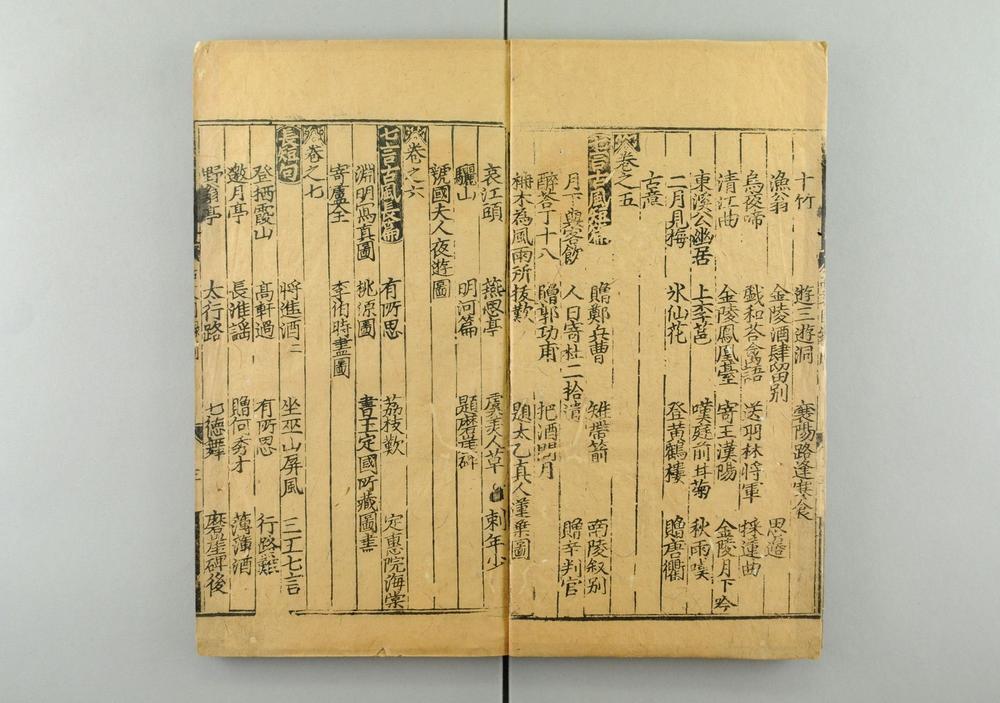 十竹 遊三遊洞 襄陽路逢寒食
漁翁 金陵酒肆留別 思邊
烏夜啼 戱和答禽語 送羽林將軍 採蓮曲
清江曲 金陵鳳凰臺 寄王漢陽 金陵月下吟
東溪公幽居 上李邕 嘆庭前甘菊 秋雨嘆
二月見梅 水仙花 登黃鶴樓 贈唐衢
古意
卷之五
七言古風短篇 贈鄭兵曹 雉帶箭 南陵叙別
月下與客飮 人日寄杜二拾遺 贈辛判官
醉答丁十八 贈郭功甫 把酒問月
楠木為風雨所抜歎 題太乙真人蓮葉圖
哀江頭 燕思亭 虞美人草 刺年少
驪山 明河篇 題磨崖碑
虢國夫人夜遊圖
卷之六
七言古風長篇 有所思 荔枝歎 定惠院海棠
淵明寫真圖 桃源圖 書王定國所藏圖畫
寄盧仝 李伯時畫圖
卷之七
長短句 將進酒二 坐巫山屏風 三五七言
登栖霞山 高軒過 有所思 行路難
邀月亭 長淮謠 贈何秀才 薄薄酒
野翁亭 太行路 七德舞 磨崖碑後